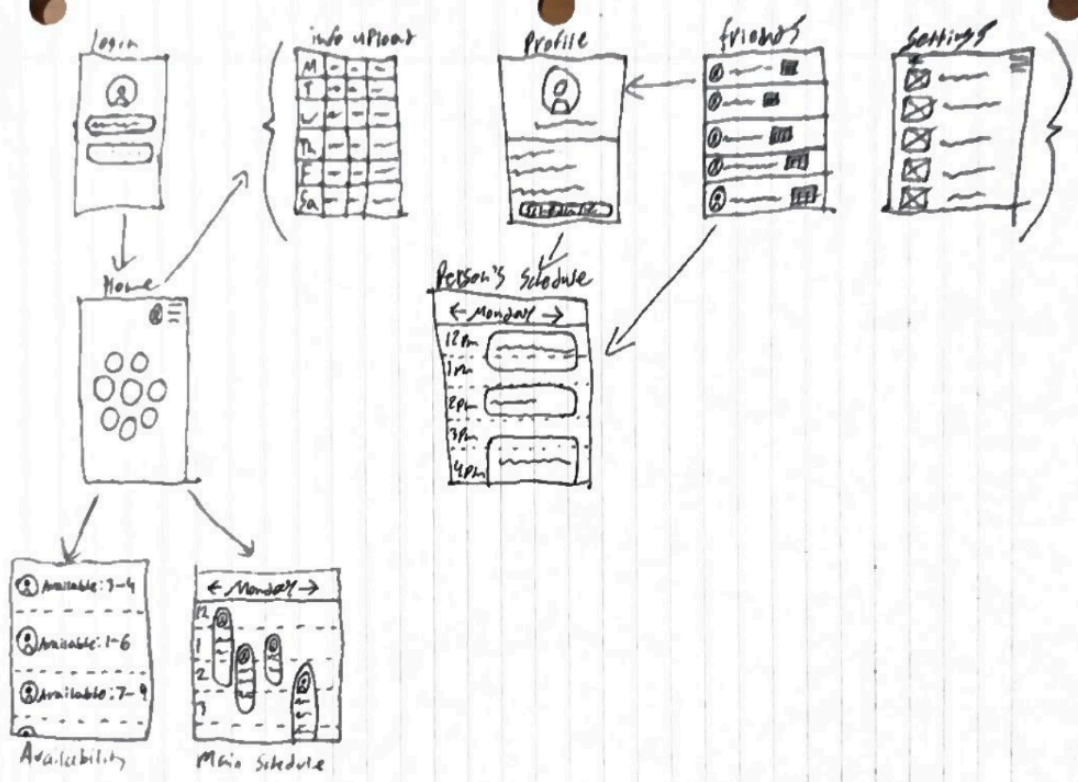 Login
info upload
Profile
friends
Settings
M
T
W
Th
F
Sa
Home
Person's Schedule
← Monday →
12pm
1pm
2pm
3pm
4pm
Available: 3-4
Available: 1-6
Available: 7-9
Availability
← Monday →
12
1
2
3
Main Schedule